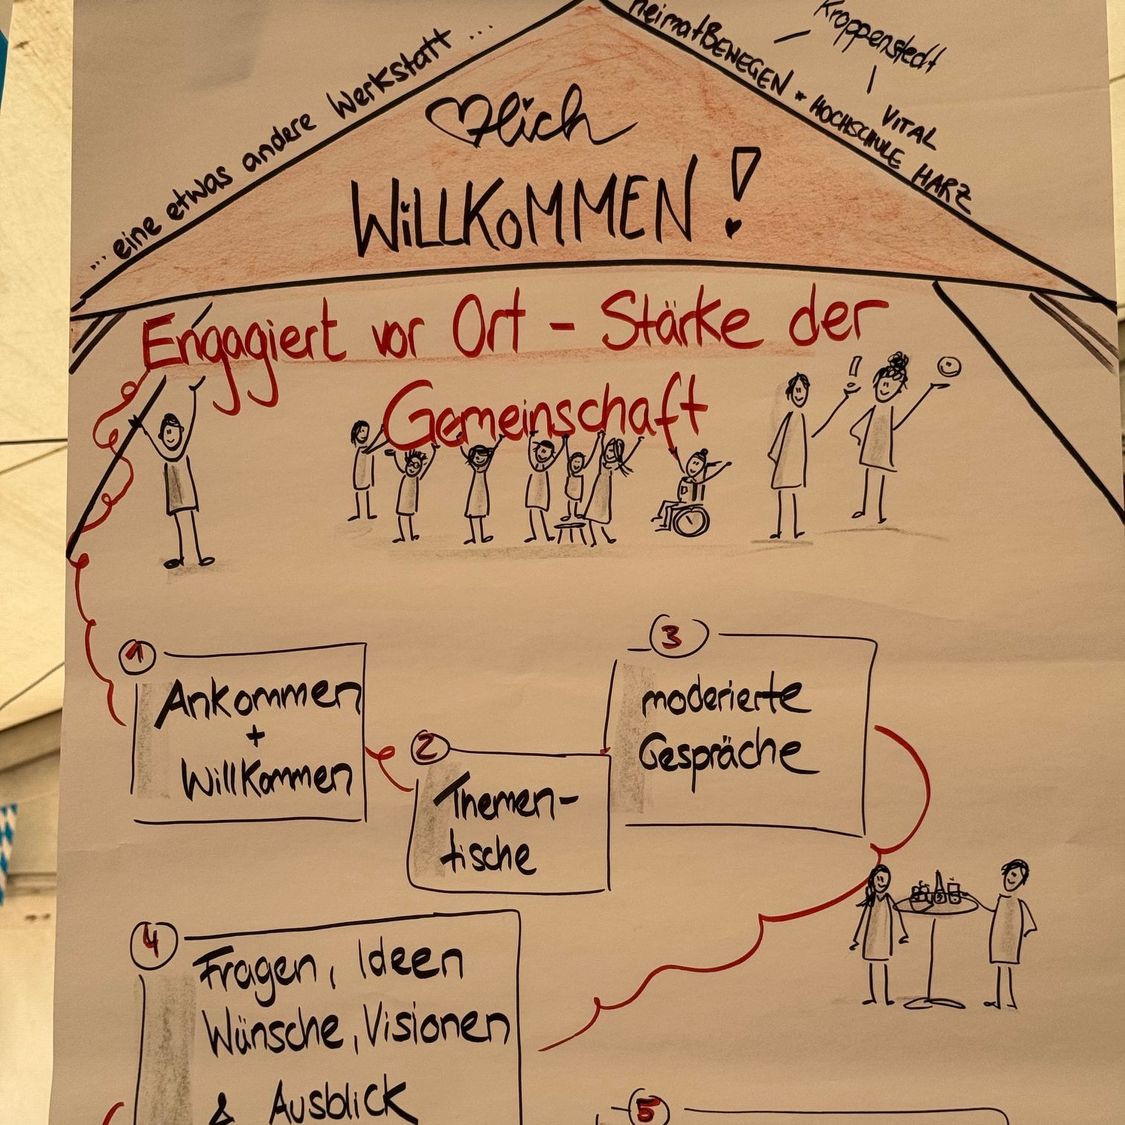 ... eine etwas andere Werkstatt ...
heimatBEWEGEN * HOCHSCHULE HARZ
Kroppenstedt
VITAL
♡lich
WiLLKoMMEN!
Engagiert vor Ort - Stärke der
Gemeinschaft
1
Ankommen
+
Willkommen
2
Themen-
tische
3
moderierte
Gespräche
4
Fragen, Ideen
Wünsche, Visionen
& Ausblick
5